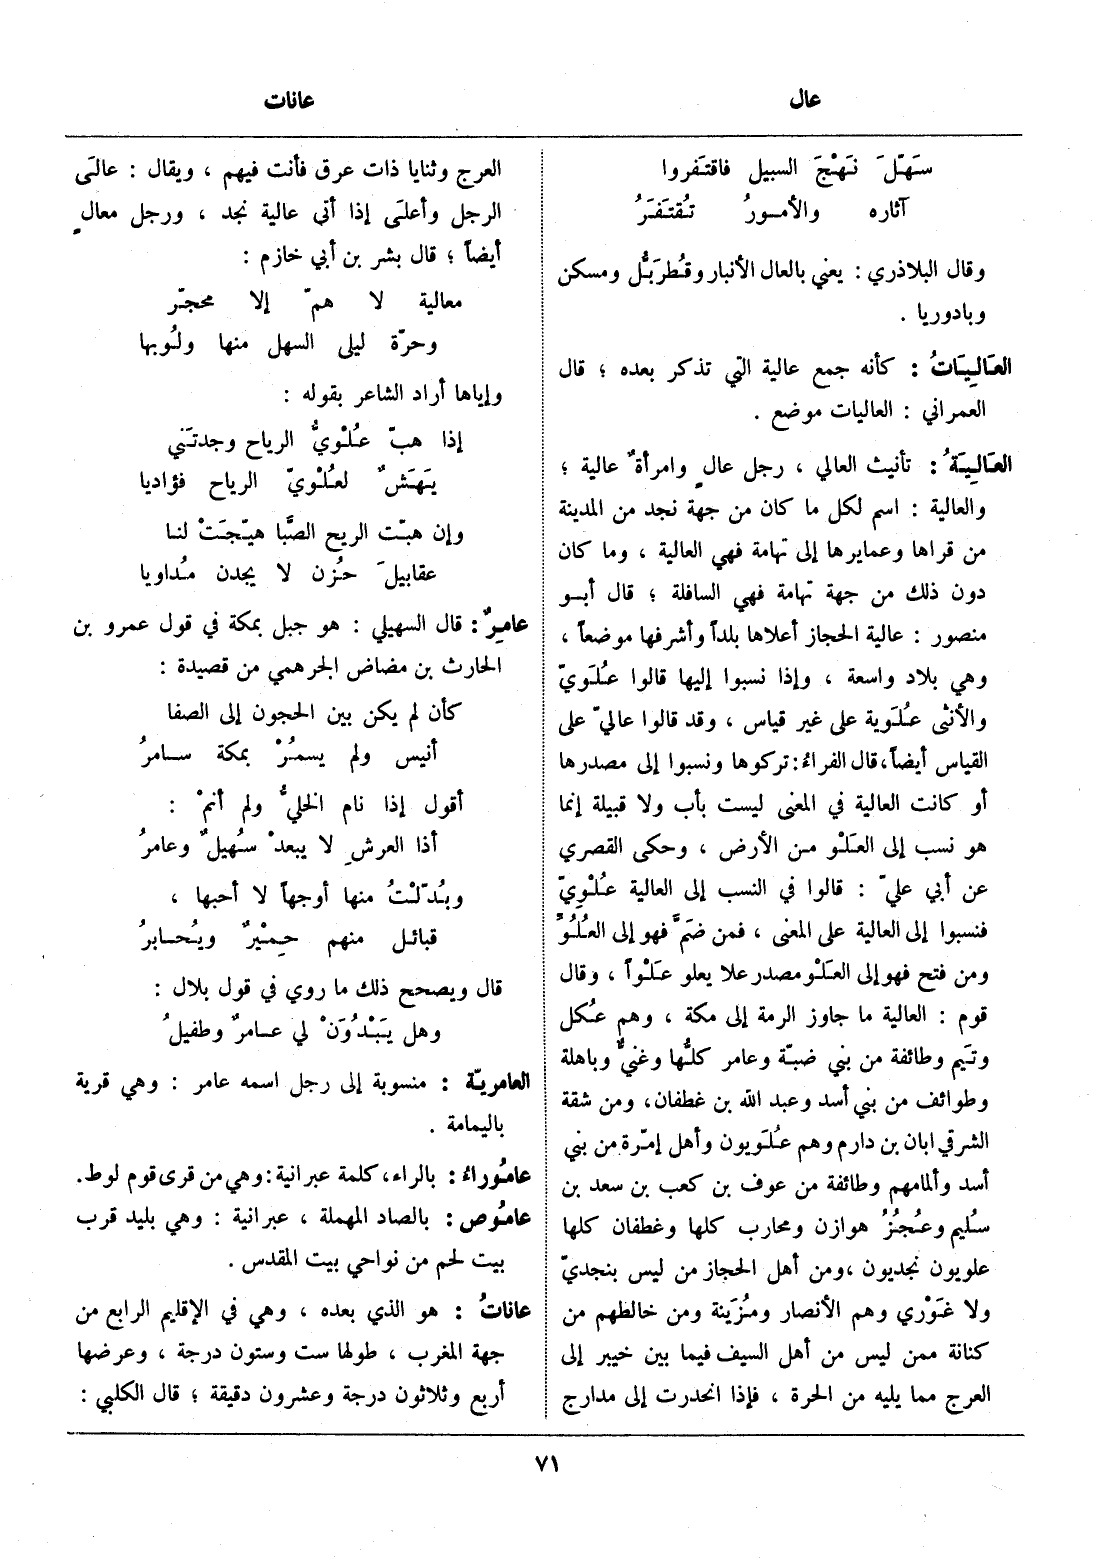 عال
عانات
سَهّلَ نَهْجَ السبيل فاقتَفروا
آثاره والأمورُ تُقتَفَرُ
وقال البلاذري : يعني بالعال الأنبار وقُطرَبُّل ومسكن
وبادوريا .
العَالِيَاتُ : كأنه جمع عالية التي تذكر بعده ؛ قال
العمراني : العاليات موضع .
العَالِيَةُ : تأنيث العالي ، رجل عالٍ وامرأةٌ عالية ؛
والعالية : اسم لكل ما كان من جهة نجد من المدينة
من قراها وعمايرها إلى تهامة فهي العالية ، وما كان
دون ذلك من جهة تهامة فهي السافلة ؛ قال أبو
منصور : عالية الحجاز أعلاها بلداً وأشرفها موضعاً ،
وهي بلاد واسعة ، وإذا نسبوا إليها قالوا عُلَويّ
والأنثى عُلَوية على غير قياس ، وقد قالوا عاليّ على
القياس أيضاً، قال الفراءُ: تركوها ونسبوا إلى مصدرها
أو كانت العالية في المعنى ليست بأب ولا قبيلة إنما
هو نسب إلى العَلْو من الأرض ، وحكى القصري
عن أبي عليّ : قالوا في النسب إلى العالية عُلْوِيّ
فنسبوا إلى العالية على المعنى ، فمن ضَمَّ فهو إلى العُلُوّ
ومن فتح فهو إلى العَلْو مصدر علا يعلو عَلْواً ، وقال
قوم : العالية ما جاوز الرمة إلى مكة ، وهم عُكل
وتَيم وطائفة من بني ضبّة وعامر كلُّها وغنيٌّ وباهلة
وطوائف من بني أسد وعبد الله بن غطفان، ومن شقة
الشرقي ابان بن دارم وهم عُلَويون وأهل إمّرة من بني
أسد وألمامهم وطائفة من عوف بن كعب بن سعد بن
سُليم وعُجُزُ هوازن ومحارب كلها وغطفان كلها
علويون نجديون ،ومن أهل الحجاز من ليس بنجديّ
ولا غَوْري وهم الأنصار ومُزَينة ومن خالطهم من
كنانة ممن ليس من أهل السيف فيما بين خيبر إلى
العرج مما يليه من الحرة ، فإذا انحدرت إلى مدارج
العرج وثنايا ذات عرق فأنت فيهم ، ويقال : عالَى
الرجل وأعلَى إذا أتى عالية نجد ، ورجل معالٍ
أيضاً ؛ قال بشر بن أبي خازم :
معالية لا همّ إلا محجّر
وحرّة ليلى السهل منها ولُوبها
وإياها أراد الشاعر بقوله :
إذا هبّ عُلْويُّ الرياح وجدتَني
يَهَشٌ لعُلْويّ الرياح فؤاديا
وإن هبّت الريح الصَّبا هيّجَتْ لنا
عقابيلَ حُزن لا يجدن مُداويا
عامِرٌ : قال السهيلي : هو جبل بمكة في قول عمرو بن
الحارث بن مضاض الجرهمي من قصيدة :
كأن لم يكن بين الحجون إلى الصفا
أنيس ولم يسمُرْ بمكة سامرُ
أقول إذا نام الخليُّ ولم أنمْ :
أذا العرشِ لا يبعدْ سُهيلٌ وعامرُ
وبُدّلْتُ منها أوجهاً لا أحبها ،
قبائل منهم حِمْيرٌ ويُحابرُ
قال ويصحح ذلك ما روي في قول بلال :
وهل يَبْدُوَنْ لي عامرٌ وطفيلُ
العامريّة : منسوبة إلى رجل اسمه عامر : وهي قرية
باليمامة .
عامُوراءُ : بالراء، كلمة عبرانية: وهي من قرى قوم لوط.
عامُوص : بالصاد المهملة ، عبرانية : وهي بليد قرب
بيت لحم من نواحي بيت المقدس .
عاناتُ : هو الذي بعده ، وهي في الإقليم الرابع من
جهة المغرب ، طولها ست وستون درجة ، وعرضها
أربع وثلاثون درجة وعشرون دقيقة ؛ قال الكلبي :
٧١